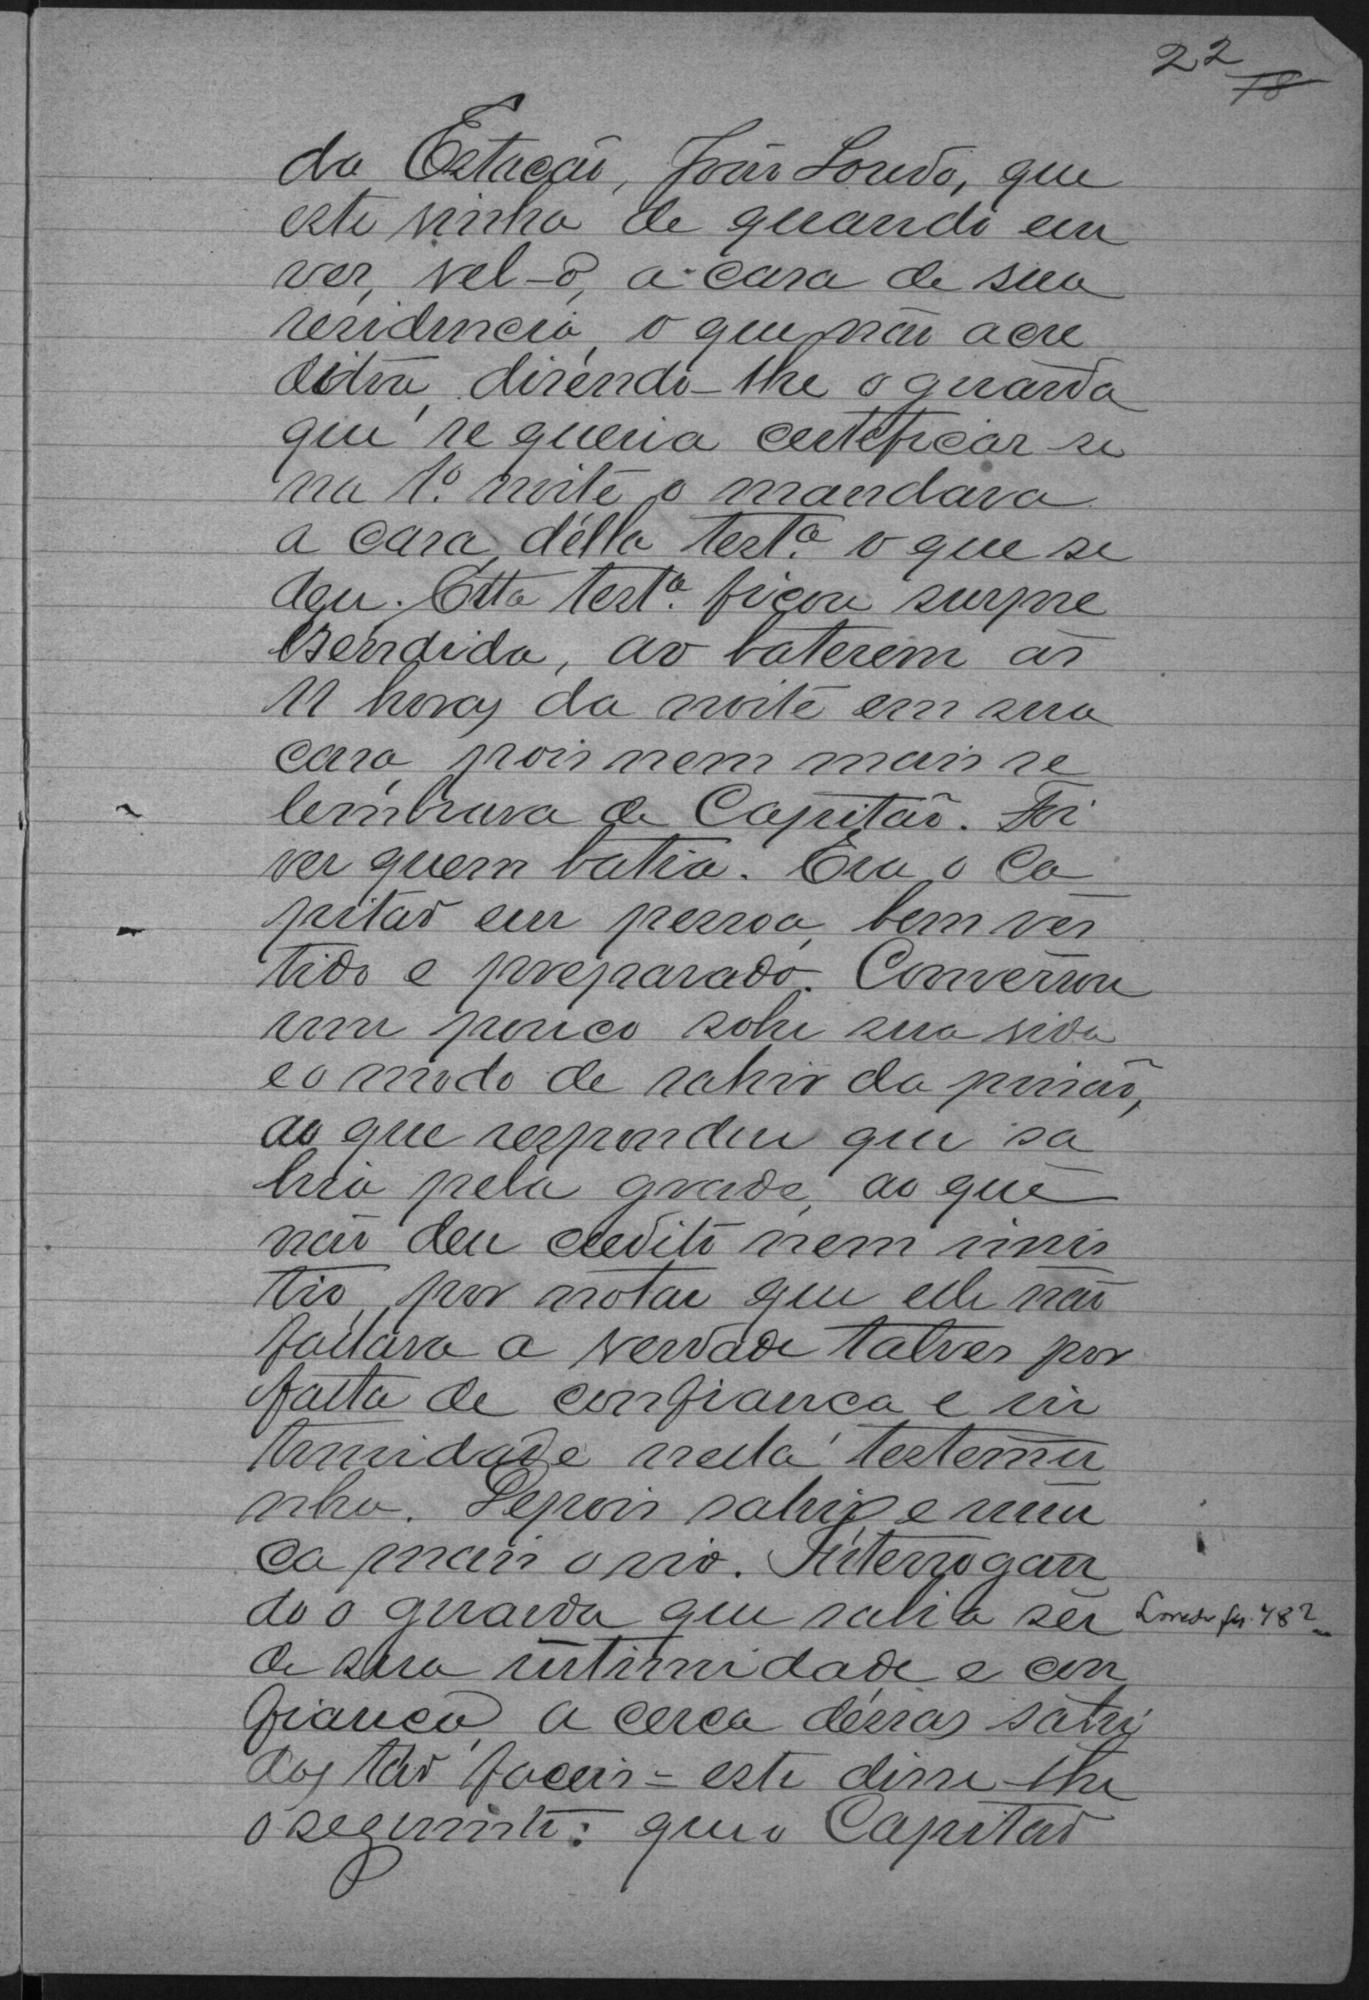 22
18
da Estação, João Loredo, que
este vinha de quando em
vez, vel-o, a casa de sua
residencia, o que não acre
ditou, dizendo-lhe o guarda
que se queria certificar-se
na 1ª noite o mandava
a casa, délla testª o que se
deu. Etta testª ficou surpre
hendida, ao baterem às
11 horas da noite em sua
casa, pois nem mais se
lembrava de Capitão. Foi
ver quem batia. Era o Ca
pitão em pessoa, bem ves
tido e preparado. Conversou
um pouco sobre sua vida
e o modo de sahir da prisão,
ao que respondeu que sa
hia pela grade, ao que
não deu credito nem insis
tio, por notar que elle não
fallava a verdade talvez por
falta de confiança e in
timidade nella testemu
nha. Depois sahio e nun
ca mais o vio. Interrogan
do o guarda que sabia ser
Loredo fls. 48?
de sua intimidade e con
fiança, a cerca dessas sahi
das tão faceis = este disse-lhe
o seguinte: que o Capitão